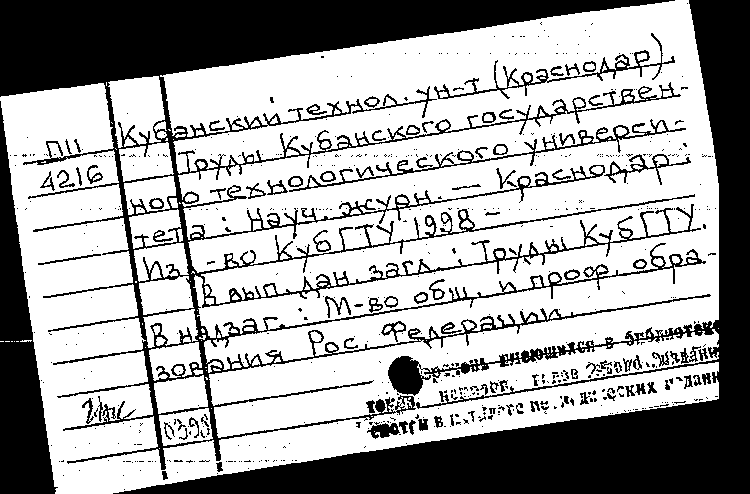 Кубанский технол. ун-т (Краснодар).
П11
Труды Кубанского государствен-
4216
ного технологического универси-
тета : Науч. журн. — Краснодар :
Изд-во КубГТУ, 1998 -
В вып. дан. загл. : Труды КубГТУ.
В надзаг. : М-во общ. и проф. обра-
зования Рос. Федерации.
имеющихся в библиотеке
смотри в
0398